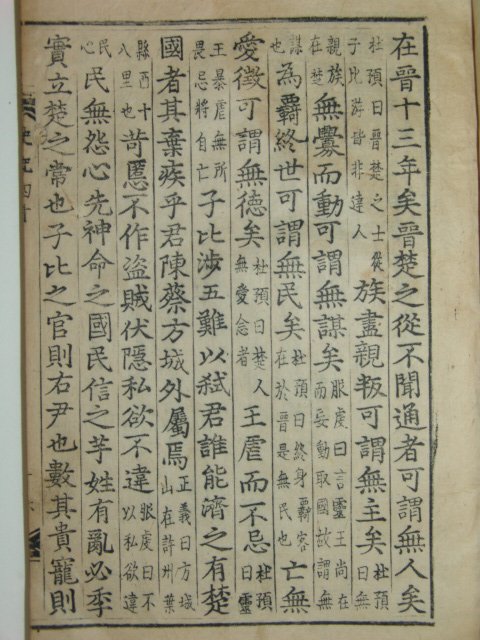 在晉十三年矣晉楚之從不聞通者可謂無人矣
杜預曰晉楚之士從子比游皆非達人族盡親叛可謂無主矣杜預曰無
親族在楚無釁而動可謂無謀矣服虔曰言靈王尚在而妄動取國故謂無
謀也為覊終世可謂無民矣杜預曰終身覊客在於晉是無民也亡無
愛徵可謂無德矣杜預曰楚人無愛念者王虐而不忌杜預曰靈
王暴虐無所畏忌將自亡子比涉五難以弑君誰能濟之有楚
國者其棄疾乎君陳蔡方城外屬焉正義曰方城山在許州葉
縣西十八里也苛慝不作盜賊伏隱私欲不違服虔曰不以私欲違
民心民無怨心先神命之國民信之芊姓有亂必季
實立楚之常也子比之官則右尹也數其貴寵則